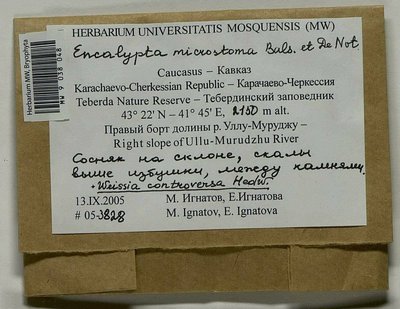 HERBARIUM UNIVERSITATIS MOSQUENSIS (MW)
Encalypta microstoma Bals. et De Not.
Caucasus – Кавказ
Karachaevo-Cherkessian Republic – Карачаево-Черкессия
Teberda Nature Reserve – Тебердинский заповедник
43° 22' N – 41° 45' E, 2150 m alt.
Правый борт долины р. Уллу-Муруджу –
Right slope of Ullu-Murudzhu River
Сосняк на склоне, скалы
выше избушки, между камнями.
+ Weissia controversa Hedw.
13.IX.2005 М. Игнатов, Е.Игнатова
# 05-3828 M. Ignatov, E. Ignatova
Herbarium MW, Bryophyta
MW 9 038 048